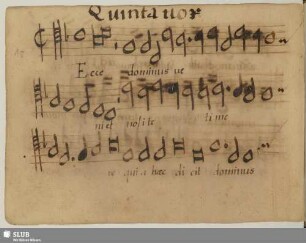 Quinta vox
Ecce dominus ve
niet noli te time
re quia haec dicit dominus
SLUB